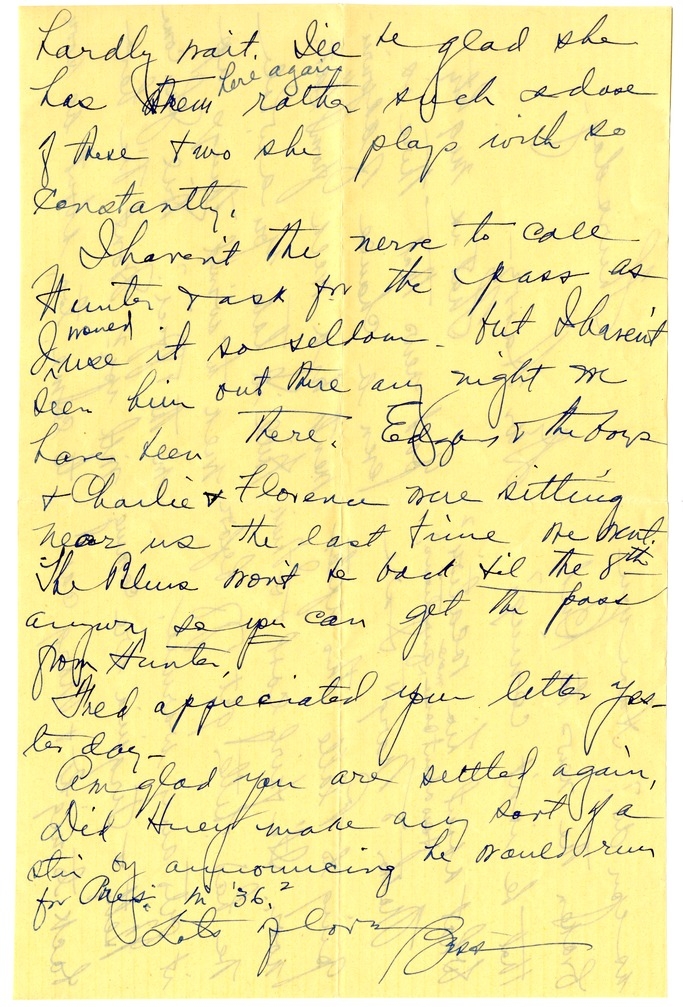 hardly wait. I'll be glad she
has them here again rather such a dose
of these two she plays with so
constantly.
I haven't the nerve to call
Hunter & ask for the pass as
I would use it so seldom - but I haven't
seen him out there any night we
have been there. Edgar & the boys
& Charlie & Florence were sitting
near us the last time we went.
The Blues won't be back til the 8th
anyway so you can get the pass
from Hunter.
Fred appreciated your letter yes-
terday -
Am glad you are settled again.
Did Huey make any sort of a
stir by announcing he would run
for Pres. in '36.?
Lots of love Bess